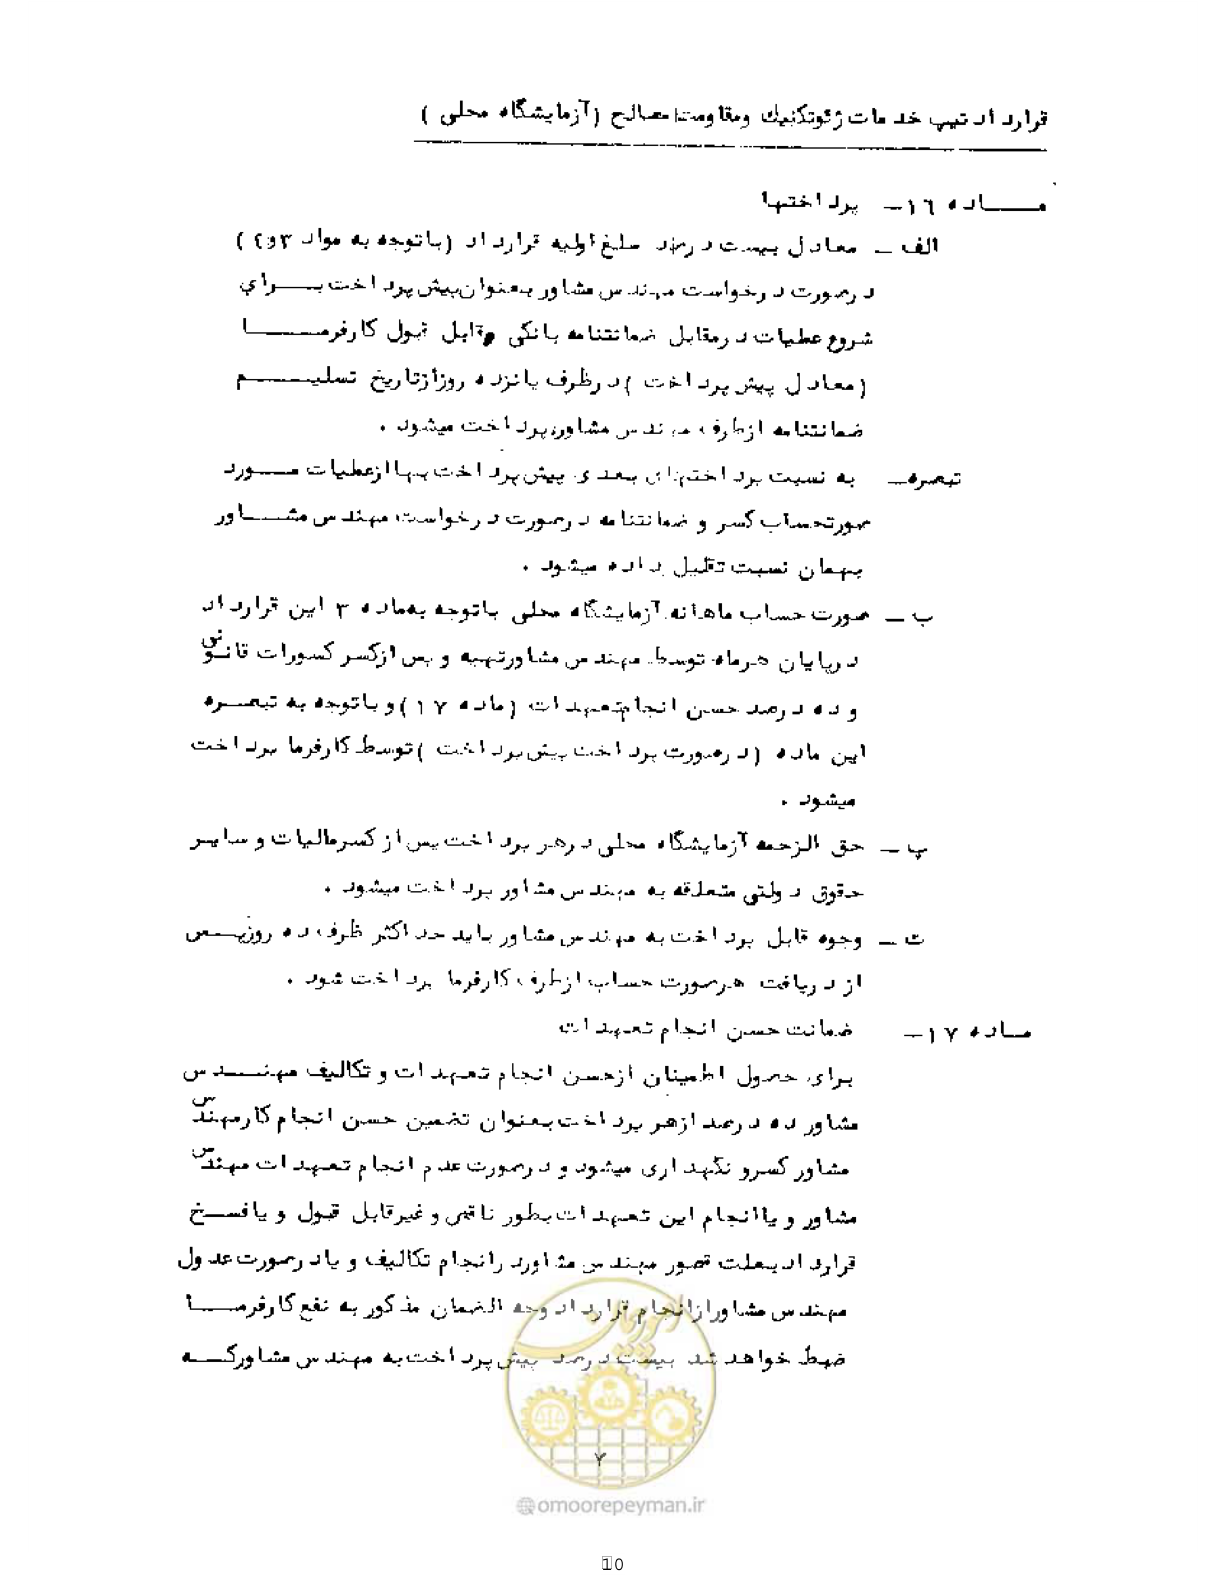 قرارداد تیپ خدمات ژئوتکنیک ومقاومت مصالح (آزمایشگاه محلی )
مــاده ١٦- پرداختها
الف - معادل بیست درصد مبلغ اولیه قرارداد (باتوجه به مواد ٣و٤ )
درصورت درخواست مهندس مشاور بعنوان پیش پرداخت بــرای
شروع عملیات درمقابل ضمانتنامه بانکی قابل قبول کارفرمــا
(معادل پیش پرداخت )درظرف پانزده روزازتاریخ تسلیــم
ضمانتنامه ازطرف مهندس مشاور،پرداخت میشود .
تبصره- به نسبت پرداختهای بعدی پیش پرداخت بهاازعملیات مــورد
صورتحساب کسر و ضمانتنامه درصورت درخواست مهندس مشــاور
بهمان نسبت تقلیل داده میشود .
ب - صورت حساب ماهانه آزمایشگاه محلی باتوجه بهماده ٣ این قرارداد
درپایان هرماه توسط مهندس مشاورتهیه و پس ازکسر کسورات قانونی
و ده درصد حسن انجام تعهدات (ماده ١٧ )و باتوجه به تبصــره
این ماده (درصورت پرداخت پیش پرداخت )توسط کارفرما پرداخت
میشود .
پ - حق الزحمه آزمایشگاه محلی درهر پرداخت پس از کسرمالیات و سایــر
حقوق دولتی متعلقه به مهندس مشاور پرداخت میشود .
ت - وجوه قابل پرداخت به مهندس مشاور باید حداکثر ظرف ده روزپــس
از دریافت هرصورت حساب ازطرف کارفرما پرداخت شود .
مــاده ١٧- ضمانت حسن انجام تعهدات
برای حصول اطمینان ازحسن انجام تعهدات و تکالیف مهنــدس
مشاور ده درصد ازهر پرداخت بعنوان تضمین حسن انجام کارمهندس
مشاور کسرو نگهداری میشود و درصورت عدم انجام تعهدات مهندس
مشاور و یاانجام این تعهدات بطور ناقص و غیرقابل قبول و یافســخ
قرارداد بعلت قصور مهندس مشاور درانجام تکالیف و یادرصورت عدول
مهندس مشاورازانجام قرارداد وجه الضمان مذکور به نفع کارفرمــا
ضبط خواهد شد بیست درصد پیش پرداخت به مهندس مشاورکــه
امور پیمان
٧
@omoorepeyman.ir
10